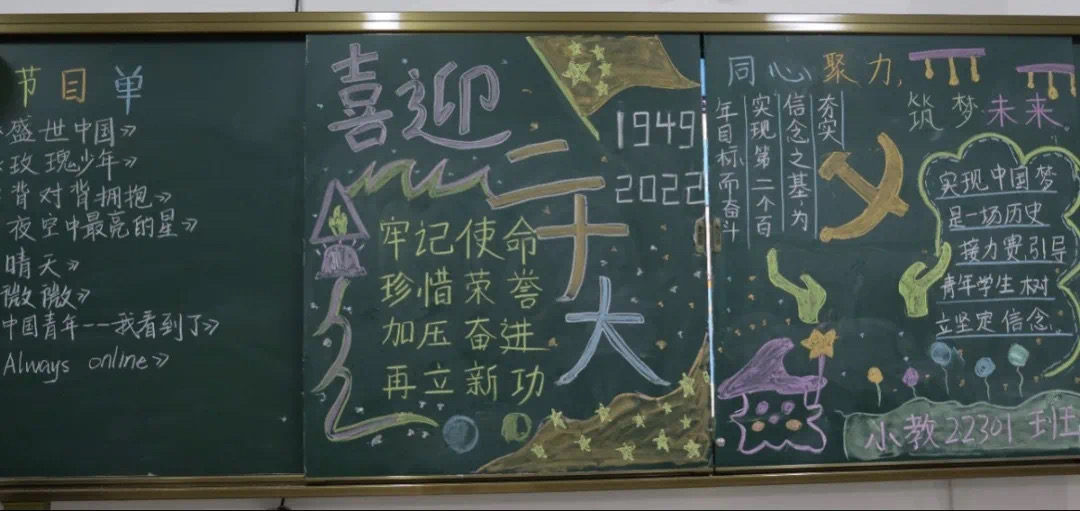 节目单
盛世中国》
玫瑰少年》
背对背拥抱》
夜空中最亮的星》
晴天》
微微》
中国青年--我看到了》
Always online》
喜迎
二十大
1949
2022
牢记使命
珍惜荣誉
加压奋进
再立新功
同心聚力,
筑梦未来
夯实
信念之基,为
实现第二个百
年目标而奋斗
实现中国梦
是一场历史
接力赛,引导
青年学生树
立坚定信念。
小教22301班